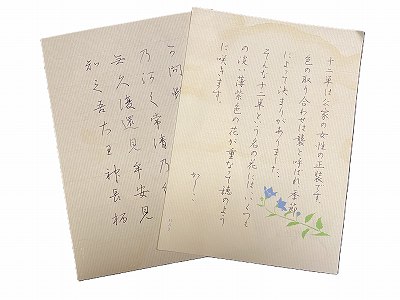 十二単は公家の女性の正装です。
色の取り合わせは襲と呼ばれ、季節
によって決まりがありました。
そんな十二単という名の花には、いくつも
の淡い薄紫色の花が重なって穂のよう
に咲きます。
乃河之常滑乃
無久復還見牟安見
知之吾大王神長柄